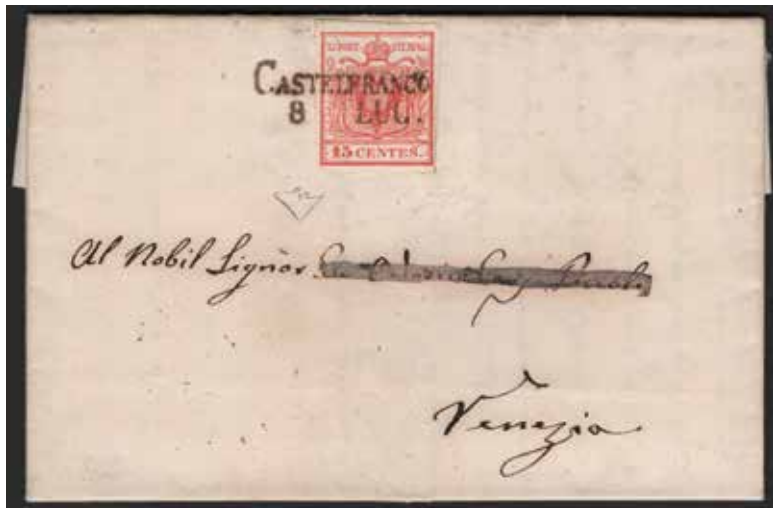 CASTELFRANCO
8 LUG.
15 CENTES.
Al Nobil Signor
Venezia